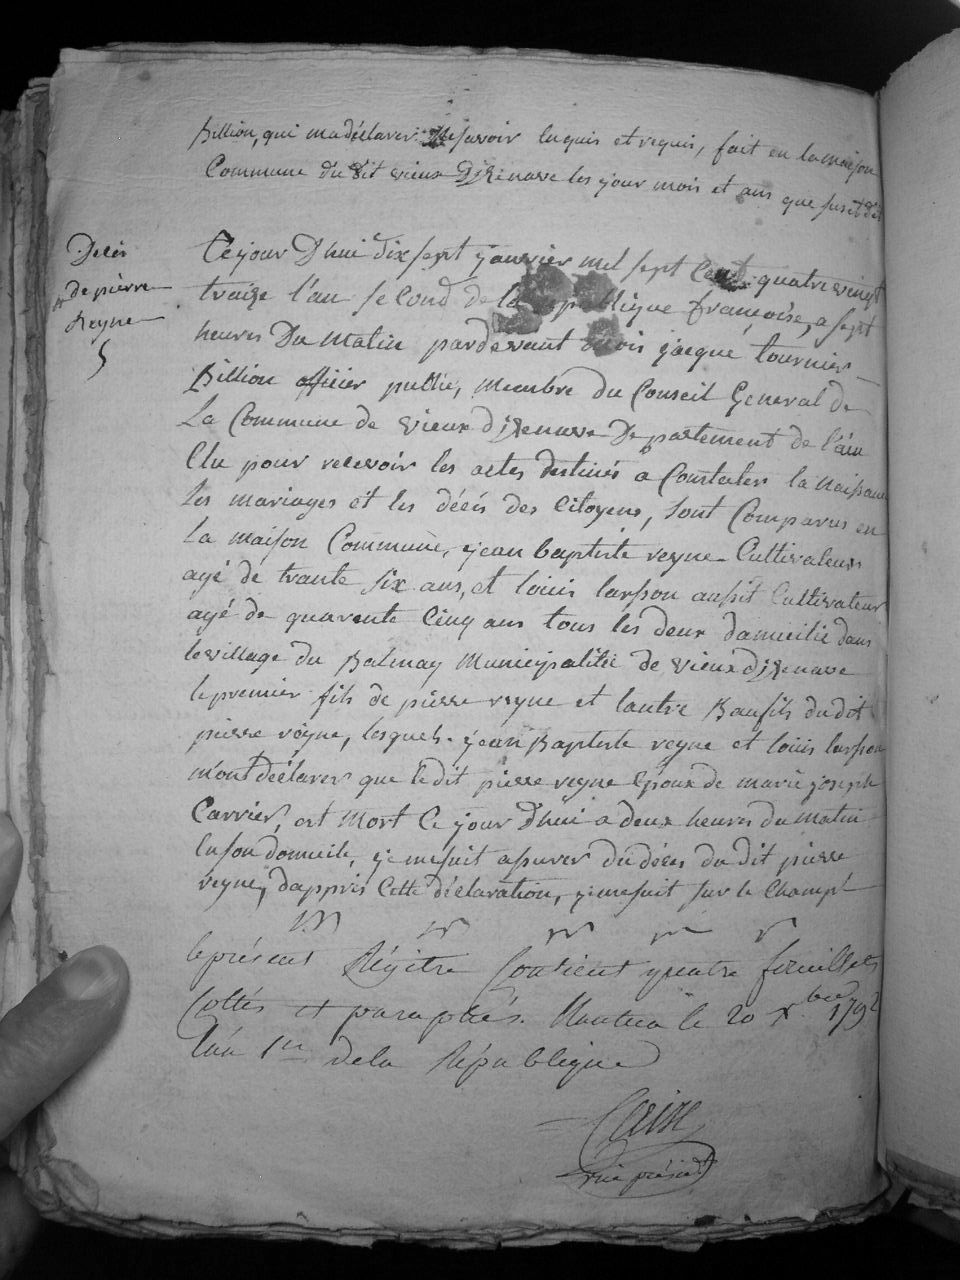 Billion, qui ma déclarer ne savoir enquis et requis, fait en la maison
Commune du dit vieux Dizenave les jour mois et ans que susdit
Décès
de pierre
Reyne
5
Ce jour Dhui dix sept janvier mil sept Cent quatre vingt
traize l'an second de la republique françoise, a sept
heures Du matin pardevant mois jacque tournier
Billion officier public, membre du Conseil General de
La Commune de vieux dizenave Departement de l'ain
Elu pour recevoir les actes destinés a Constater la naissance
les mariages et les décés des Citoyens, sont Comparus en
la maison Commune, jean baptiste reyne Cultivateur
agé de trante six ans, et louis larson aussit Cultivateur
agé de quarente Cinq ans tous les deux damicilié dans
le village du Balmay Municipalitée de vieux dizenave
le premier fils de pierre reyne et lautre Baufils du dit
pierre röyne, lesquels jean Baptiste reyne et louis larson
m'ont déclarer que le dit pierre reyne Epoux de marie joseph
Carrier, est mort Ce jour Dhui a deux heures du matin
En son domicile, je me suit assurer du décès du dit pierre
reyne, dapprés Cette déclaration, je me suit sur le Champ
le présent Régitre Contient quatre feuillets
Cottés et paraphés. Nantua le 20 Xbre 1792
L'an 1er de la République
vice présidt